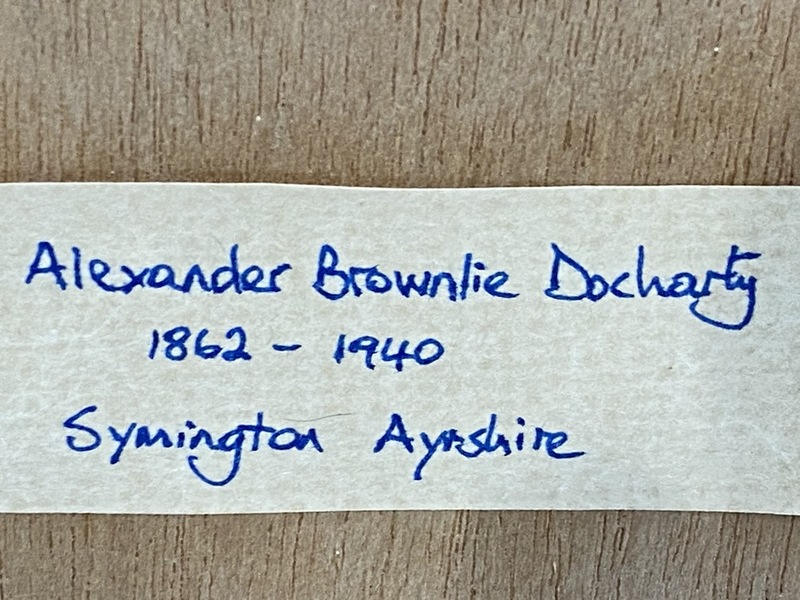 Alexander Brownlie Docharty
1862 - 1940
Symington Ayrshire